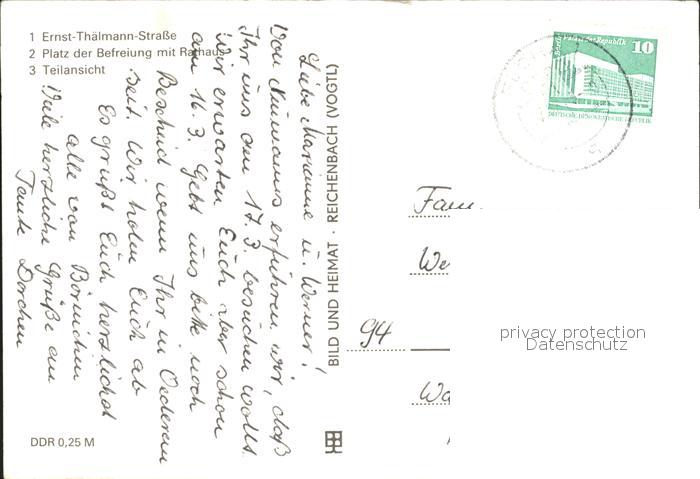 1 Ernst-Thälmann-Straße
2 Platz der Befreiung mit Rathaus
3 Teilansicht
Liebe Marianne u. Werner!
Von Neumanns erfuhren wir, daß
Ihr uns am 17.3. besuchen wollt.
Wir erwarten Euch aber schon
am 16.3. Gebt uns bitte noch
Bescheid wenn Ihr in Oederan
seit. Wir holen Euch ab
Es grüßt Euch herzlichst
alle von Börnichen
Viele herzliche Grüße von
Tante Dorchen
DDR 0,25 M
BILD UND HEIMAT · REICHENBACH (VOGTL)
Berlin Palast der Republik 10
DEUTSCHE DEMOKRATISCHE REPUBLIK
Fam.
We
94
Wa
privacy protection
Datenschutz